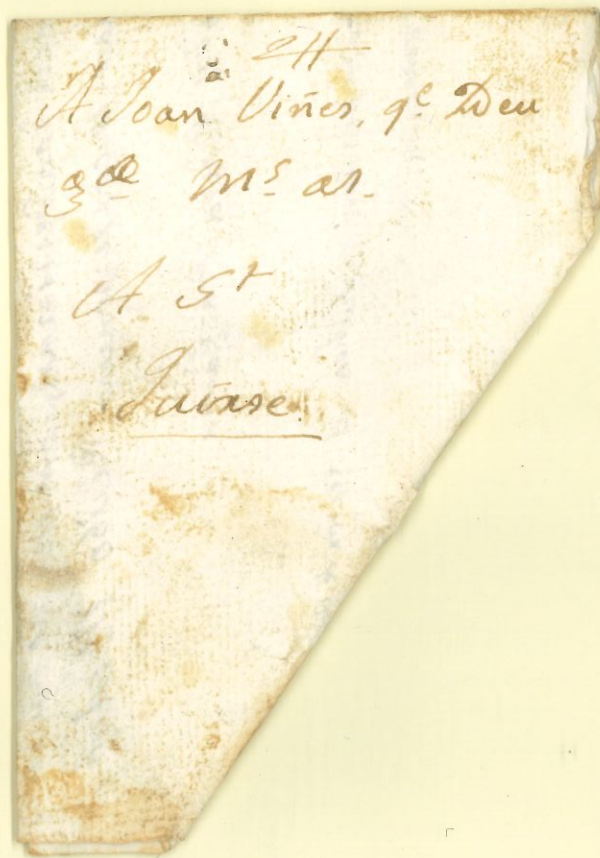 A Joan Viñes, q.e Deu
g.de M.s a.s
A S.t
Quinse